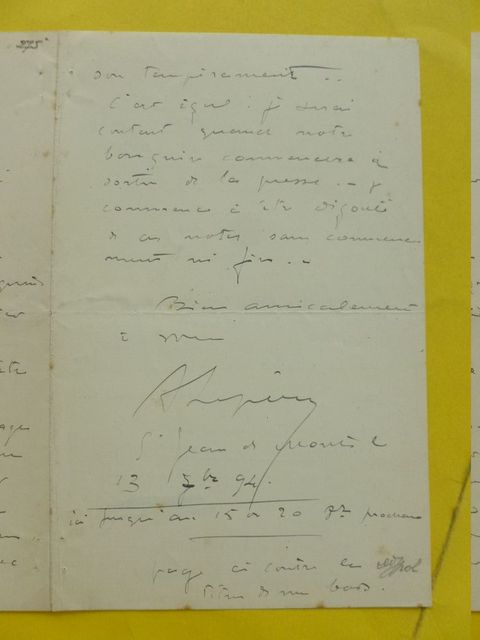 son tempérament..
C'est égal. je serai
content quand notre
bouquin commencera à
sortir de la presse. - je
commence à être dégouté
de ces notes sans commence
ment ni fin. -
Bien amicalement
à vous
ALepère
St Jean de Monts le
13 7bre 94.
ici jusqu'au 15 ou 20 8bre prochain
page ci contre les
titres de mes bois.